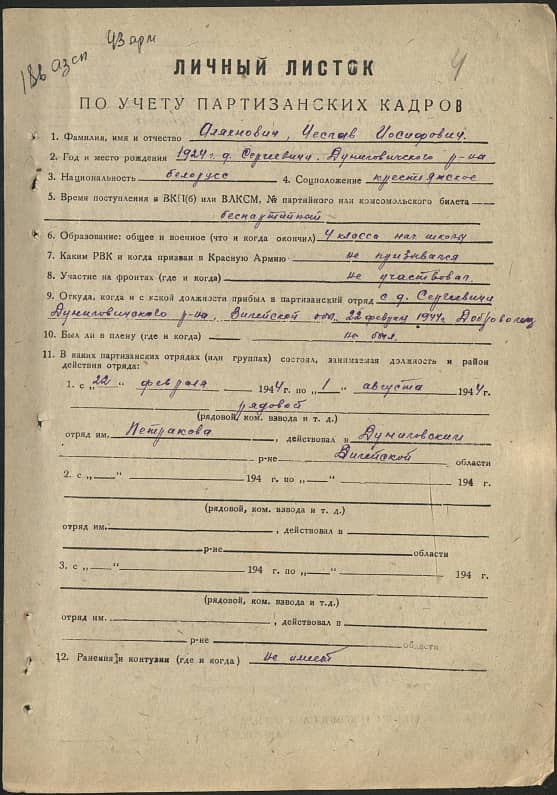 186 азсп 43 арм
4
ЛИЧНЫЙ ЛИСТОК
ПО УЧЕТУ ПАРТИЗАНСКИХ КАДРОВ
1. Фамилия, имя и отчество Аляхнович, Чеслав Иосифович.
2. Год и место рождения 1924 г. д. Сергеевичи. Дуниловичского р-на
3. Национальность белорусс 4. Соцположение крестьянское
5. Время поступления в ВКП(б) или ВЛКСМ, № партийного или комсомольского билета
беспартийный
6. Образование: общее и военное (что и когда окончил) 4 класса нач школы
7. Каким РВК и когда призван в Красную Армию не призывался
8. Участие на фронтах (где и когда) не участвовал.
9. Откуда, когда и с какой должности прибыл в партизанский отряд с д. Сергеевичи
Дуниловичского р-на, Вилейской обл. 22 февраля 1944 г. Доброволец
10. Был ли в плену (где и когда) не был.
11. В каких партизанских отрядах (или группах) состоял, занимаемая должность и район
действия отряда:
1. с „22“ февраля 1944 г. по „1“ августа 1944 г.
рядовой
(рядовой, ком. взвода и т. д.)
отряд им. Петракова, действовал в Дуниловским
р-не Вилейской области
2. с „ “ 194 г. по „ “ 194 г.
(рядовой, ком. взвода и т. д.)
отряд им. , действовал в
р-не области
3. с „ “ 194 г. по „ “ 194 г.
(рядовой, ком. взвода и т.д.)
отряд им. , действовал в
р-не области
12. Ранения и контузии (где и когда) не имеет